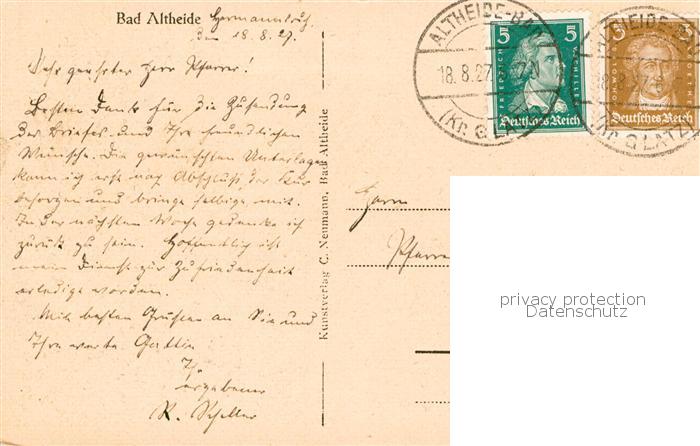 Bad Altheide Hermannbad,
den 18.8.27.
Sehr geehrter Herr Pfarrer!
Besten Dank für die Zusendung
des Briefes und Ihre freundlichen
Wünsche. Die gewünschten Unterlagen
kann ich erst nach Abschluß der Kur
besorgen und bringe selbige mit.
In der nächsten Woche gedenke ich
zurück zu sein. Hoffentlich ist
mein Dienst zur Zufriedenheit
erledigt worden.
Mit besten Grüßen an Sie und
Ihre werte Gattin
Ihr
ergebener
K. Scheller
Kunstverlag C. Neumann, Bad Altheide
ALTHEIDE-BAD
18.8.27
(Kr. GLATZ)
5 5
FRIEDRICH SCHILLER
Deutsches Reich
ALTHEIDE-BAD
18.8.27
(Kr. GLATZ)
3
Deutsches Reich
Herrn
Pfarrer
privacy protection
Datenschutz